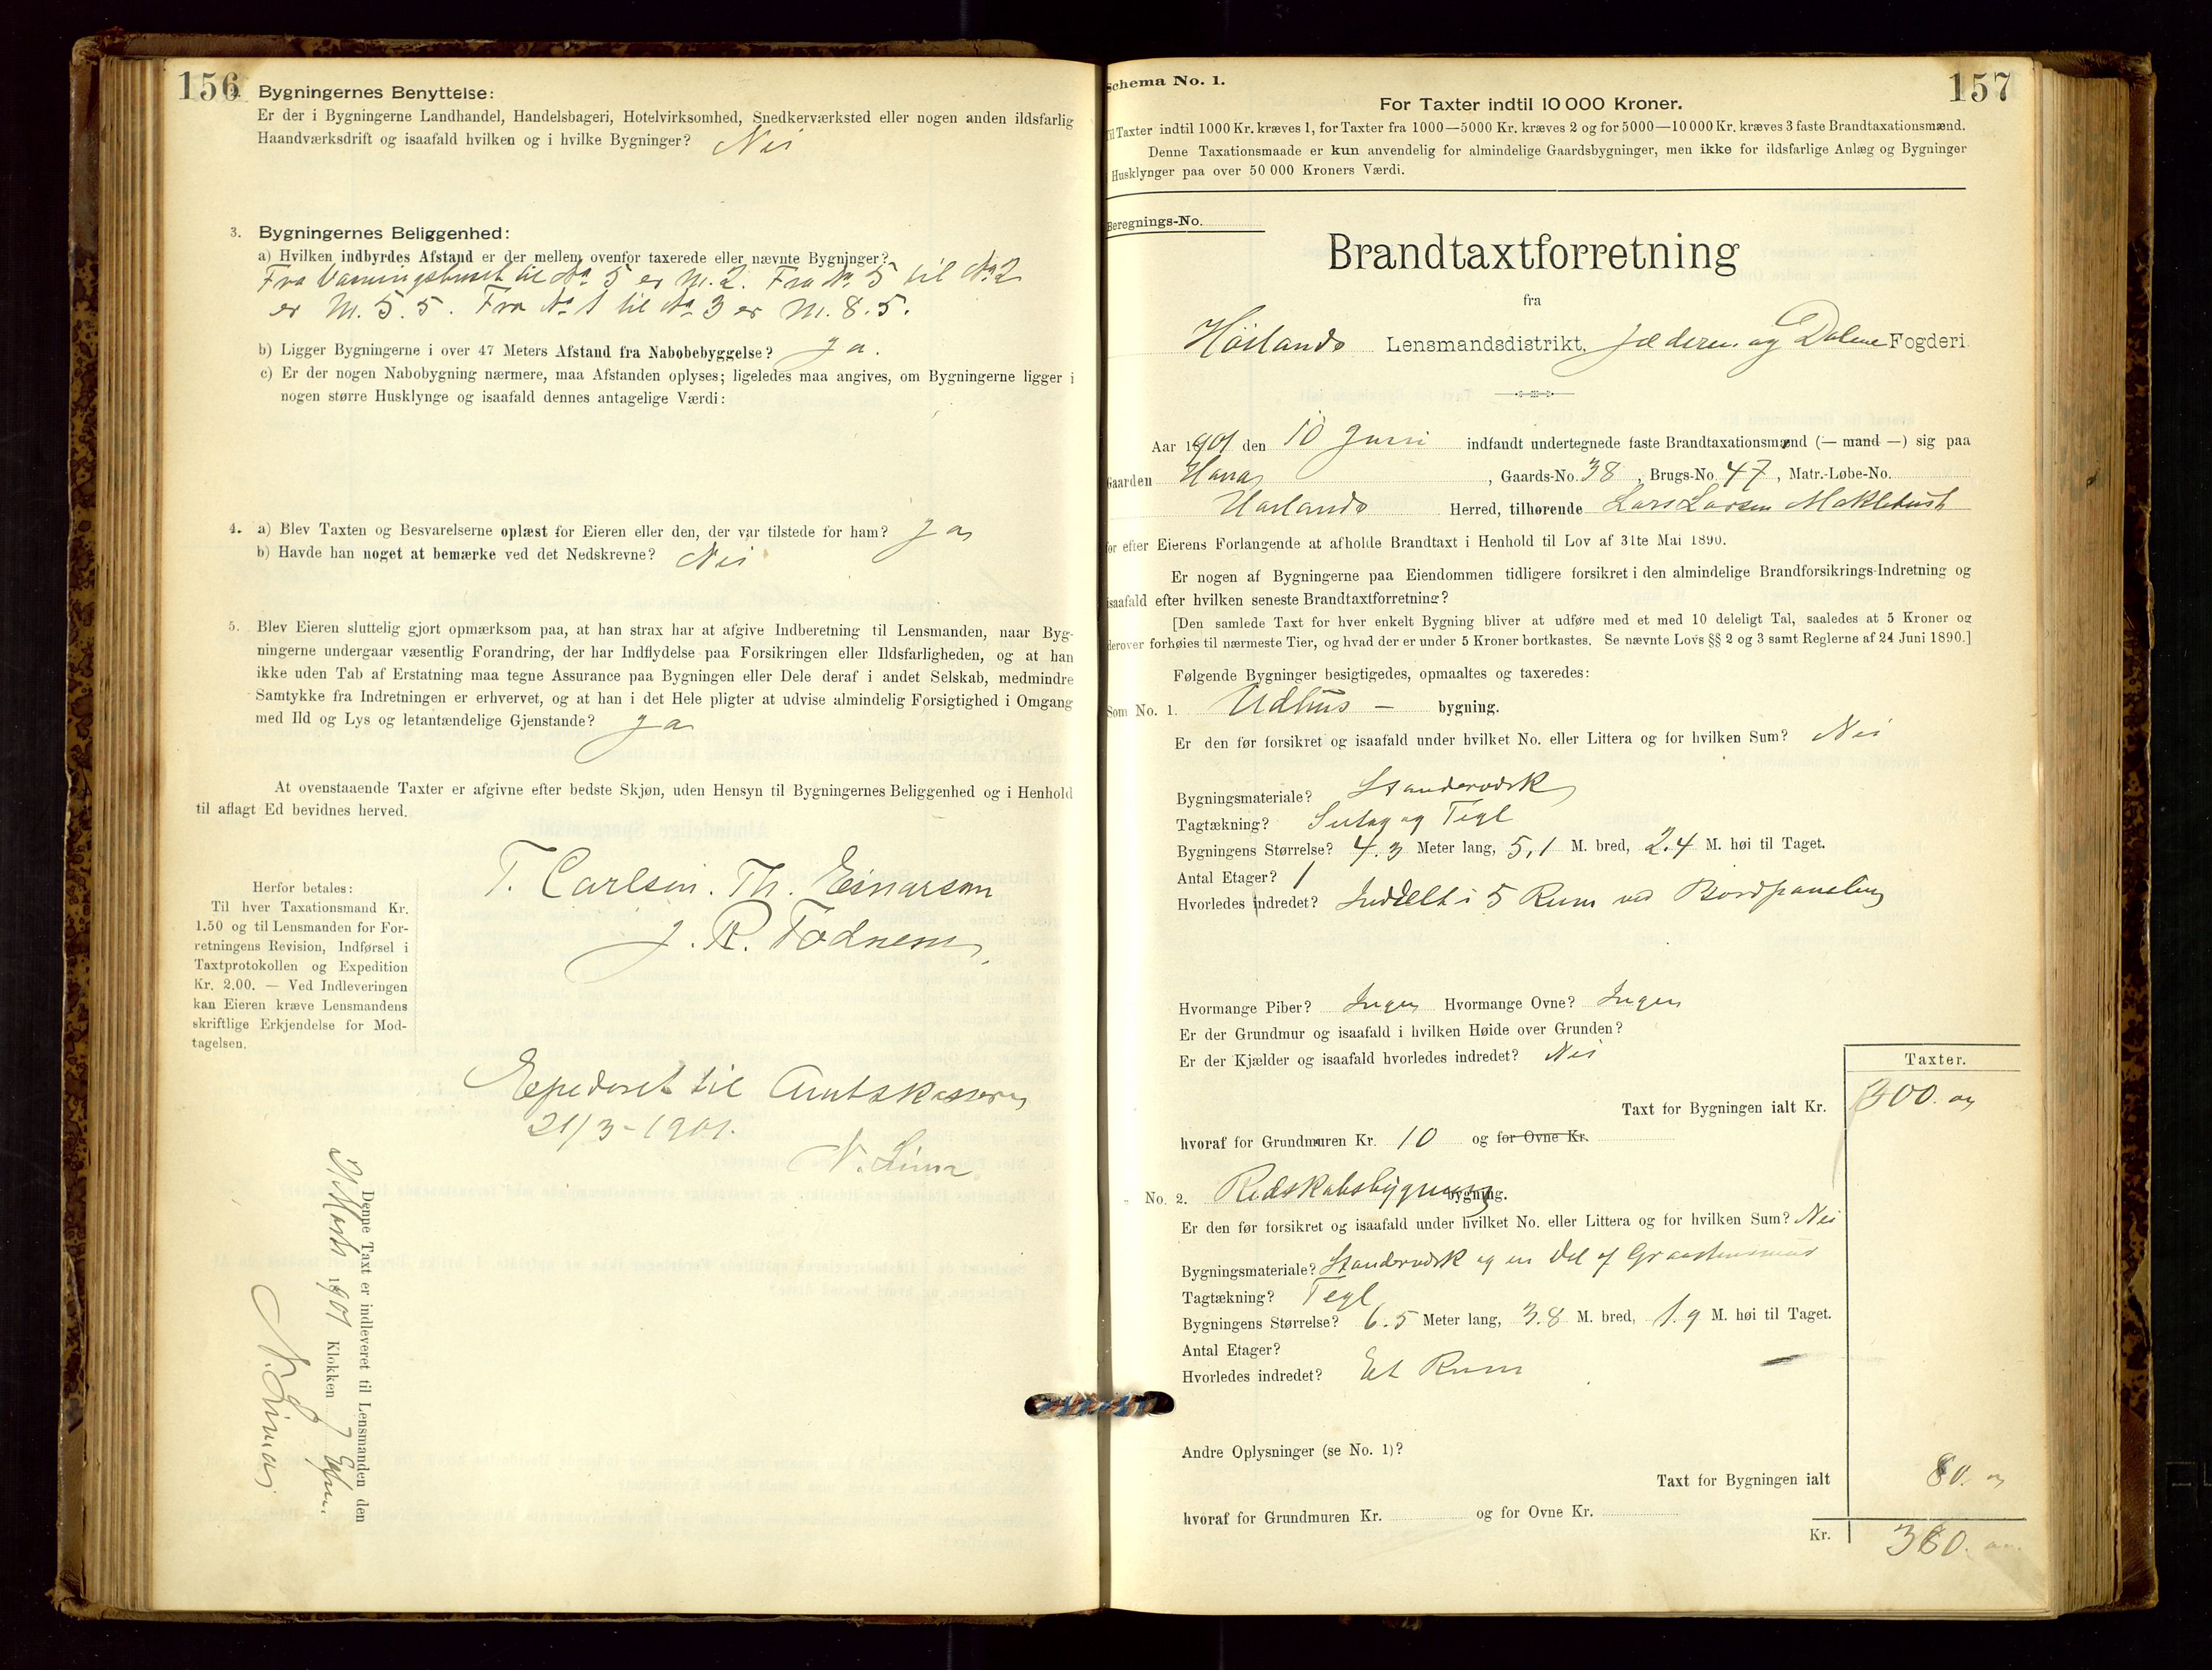 156
2. Bygningernes Benyttelse:
Er der i Bygningerne Landhandel, Handelsbageri, Hotelvirksomhed, Snedkerværksted eller nogen anden ildsfarlig
Haandværksdrift og isaafald hvilken og i hvilke Bygninger? Nei
3. Bygningernes Beliggenhed:
a) Hvilken indbyrdes Afstand er der mellem ovenfor taxerede eller nævnte Bygninger?
Fra Vaaningshuset til No 5 er M. 2. Fra No 5 til No 2
er M. 5.5. Fra No 1 til No 3 er M. 8.5.
b) Ligger Bygningerne i over 47 Meters Afstand fra Nabobebyggelse? Ja.
c) Er der nogen Nabobygning nærmere, maa Afstanden oplyses; ligeledes maa angives, om Bygningerne ligger i
nogen større Husklynge og isaafald dennes antagelige Værdi:
4. a) Blev Taxten og Besvarelserne oplæst for Eieren eller den, der var tilstede for ham? Ja
b) Havde han noget at bemærke ved det Nedskrevne? Nei
5. Blev Eieren sluttelig gjort opmærksom paa, at han strax har at afgive Indberetning til Lensmanden, naar Byg-
ningerne undergaar væsentlig Forandring, der har Indflydelse paa Forsikringen eller Ildsfarligheden, og at han
ikke uden Tab af Erstatning maa tegne Assurance paa Bygningen eller Dele deraf i andet Selskab, medmindre
Samtykke fra Indretningen er erhvervet, og at han i det Hele pligter at udvise almindelig Forsigtighed i Omgang
med Ild og Lys og letantændelige Gjenstande? Ja
At ovenstaaende Taxter er afgivne efter bedste Skjøn, uden Hensyn til Bygningernes Beliggenhed og i Henhold
til aflagt Ed bevidnes herved.
T. Carlsen. Th. Einarsen
J. R. Todnem.
Herfor betales:
Til hver Taxationsmand Kr.
1.50 og til Lensmanden for For-
retningens Revision, Indførsel i
Taxtprotokollen og Expedition
Kr. 2.00. — Ved Indleveringen
kan Eieren kræve Lensmandens
skriftlige Erkjendelse for Mod-
tagelsen.
Expederet til Amtskasseren
21/3-1901.
N. Lima
Denne Taxt er indleveret til Lensmanden den
Marts 1901 Klokken 7 Efm.
N. Lima
157
Schema No. 1.
For Taxter indtil 10 000 Kroner.
Til Taxter indtil 1000 Kr. kræves 1, for Taxter fra 1000—5000 Kr. kræves 2 og for 5000—10 000 Kr. kræves 3 faste Brandtaxationsmænd.
Denne Taxationsmaade er kun anvendelig for almindelige Gaardsbygninger, men ikke for ildsfarlige Anlæg og Bygninger
Husklynger paa over 50 000 Kroners Værdi.
Beregnings-No.
Brandtaxtforretning
fra
Høilands Lensmandsdistrikt, Jæderen og Dalene Fogderi.
Aar 1901 den 10 Juni indfandt undertegnede faste Brandtaxationsmænd (— mand —) sig paa
Gaarden Hana, Gaards-No. 38, Brugs-No. 47, Matr.-Løbe-No.
Høilands Herred, tilhørende Lars Larsen Maklebust
for efter Eierens Forlangende at afholde Brandtaxt i Henhold til Lov af 31te Mai 1890.
Er nogen af Bygningerne paa Eiendommen tidligere forsikret i den almindelige Brandforsikrings-Indretning og
isaafald efter hvilken seneste Brandtaxtforretning?
[Den samlede Taxt for hver enkelt Bygning bliver at udføre med et med 10 deleligt Tal, saaledes at 5 Kroner og
derover forhøies til nærmeste Tier, og hvad der er under 5 Kroner bortkastes. Se nævnte Lovs §§ 2 og 3 samt Reglerne af 24 Juni 1890.]
Følgende Bygninger besigtigedes, opmaaltes og taxeredes:
Som No. 1. Udhus — bygning.
Er den før forsikret og isaafald under hvilket No. eller Littera og for hvilken Sum? Nei
Bygningsmateriale? Standerværk
Tagtækning? Sutag og Tegl
Bygningens Størrelse? 4.3 Meter lang, 5,1 M. bred, 2.4 M. høi til Taget.
Antal Etager? 1
Hvorledes indredet? Inddelt i 5 Rum ved Bordpaneling
Hvormange Piber? Ingen Hvormange Ovne? Ingen
Er der Grundmur og isaafald i hvilken Høide over Grunden?
Er der Kjælder og isaafald hvorledes indredet? Nei
Taxter.
Taxt for Bygningen ialt Kr. 300.
hvoraf for Grundmuren Kr. 10 og for Ovne Kr.
No. 2. Redskabsbygning bygning.
Er den før forsikret og isaafald under hvilket No. eller Littera og for hvilken Sum? Nei
Bygningsmateriale? Standerværk og en Del af Graastensmur
Tagtækning? Tegl
Bygningens Størrelse? 6.5 Meter lang, 3.8 M. bred, 1.9 M. høi til Taget.
Antal Etager?
Hvorledes indredet? Et Rum
Andre Oplysninger (se No. 1)?
Taxt for Bygningen ialt 80.
hvoraf for Grundmuren Kr. og for Ovne Kr.
Kr. 380.